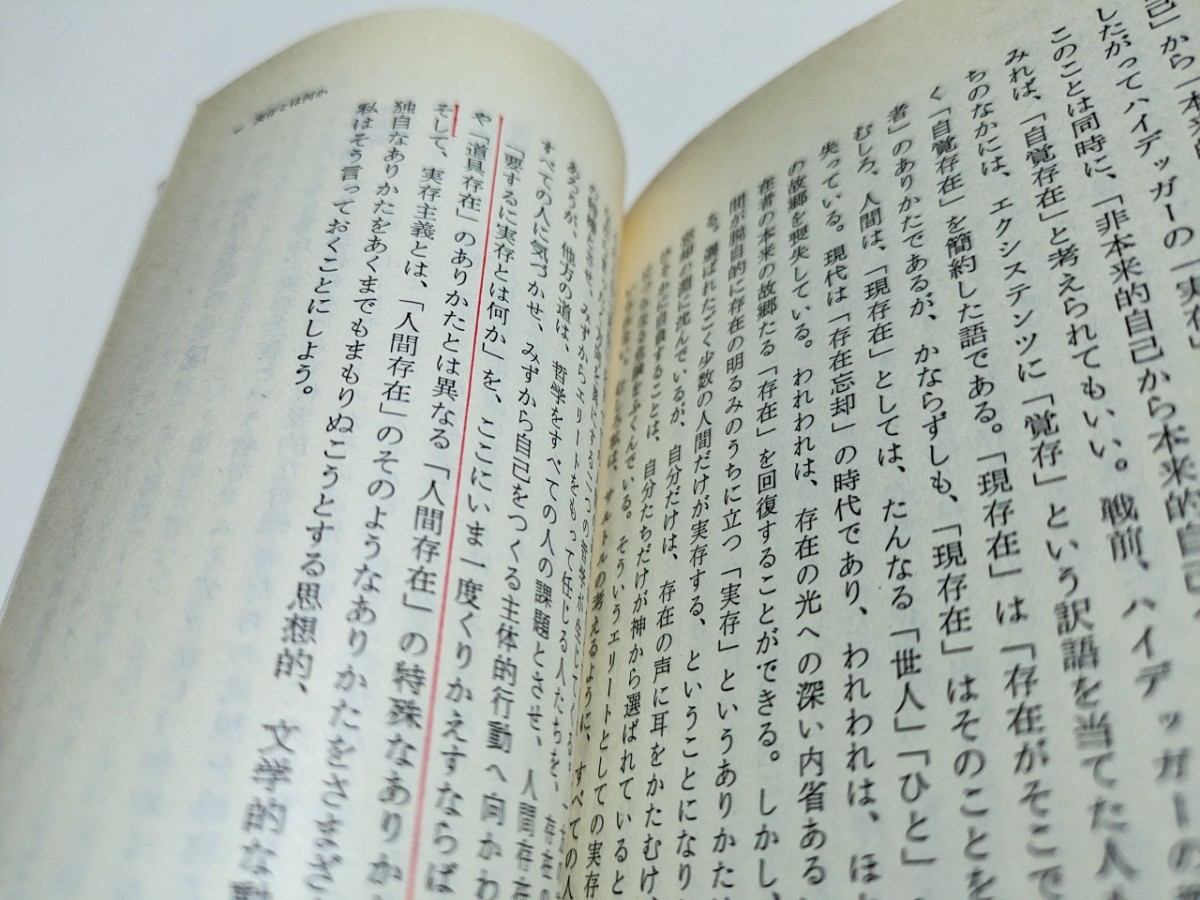 己」から「本来的自己」
したがってハイデッガーの「実存」
このことは同時に、「非本来的自己から本来的自己
みれば、「自覚存在」と考えられてもいい。戦前、ハイデッガーの
ちのなかには、エクシステンツに「覚存」という訳語を当てた人
く「自覚存在」を簡約した語である。「現存在」は「存在がそこで
者」のありかたであるが、かならずしも、「現存在」はそのことを
むしろ、人間は、「現存在」としては、たんなる「世人」「ひと」の
失っている。現代は「存在忘却」の時代であり、われわれは、ほ
の故郷を喪失している。われわれは、存在の光への深い内省ある
在者の本来の故郷たる「存在」を回復することができる。しかし、
間が脱自的に存在の明るみのうちに立つ「実存」というありかたは
る。選ばれたごく少数の人間だけが実存する、ということになり
忘却の淵に沈んでいるが、自分だけは、存在の声に耳をかたむけ、
ひそかに自負することは、自分たちだけが神から選ばれていると
な危険をふくんでいる。そういうエリートとしての実存
むしろ私は、サルトルの考えるように、すべての人
みずからエリートをもって任じる人たちを、
あろうが、他方の道は、哲学をすべての人の課題とさせ、人間存在
すべての人に気づかせ、みずから自己をつくる主体的行動へ向かわ
「要するに実存とは何か」を、ここにいま一度くりかえすならば
や「道具存在」のありかたとは異なる「人間存在」の特殊なありか
そして、実存主義とは、「人間存在」のそのようなありかたをさまざ
独自なありかたをあくまでもまもりぬこうとする思想的、文学的な動
私はそう言っておくことにしよう。
実存とは何か